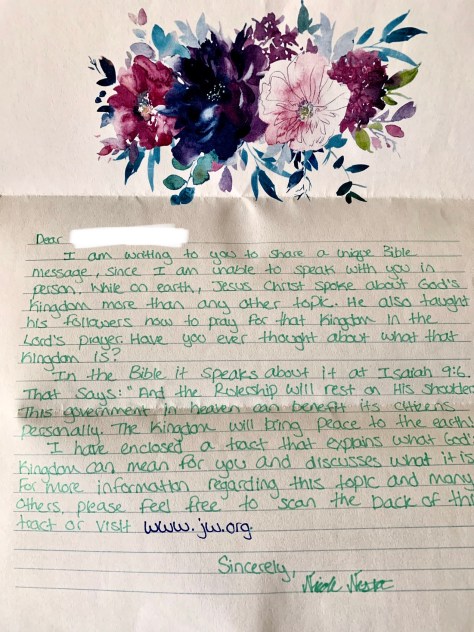 Dear
I am writing to you to share a unique Bible
message, since I am unable to speak with you in
person. While on earth, Jesus Christ spoke about God's
Kingdom more than any other topic. He also taught
his followers how to pray for that Kingdom in the
Lord's prayer. Have you ever thought about what that
Kingdom is?
In the Bible it speaks about it at Isaiah 9:6.
That says: "And the Rulership will rest on His shoulder
This government in heaven can benefit its citizens
personally. The Kingdom will bring peace to the earth.
I have enclosed a tract that explains what God
Kingdom can mean for you and discusses what it is
For more information regarding this topic and many
others, please feel free to scan the back of th
tract or visit www.jw.org.
Sincerely,
Nicole